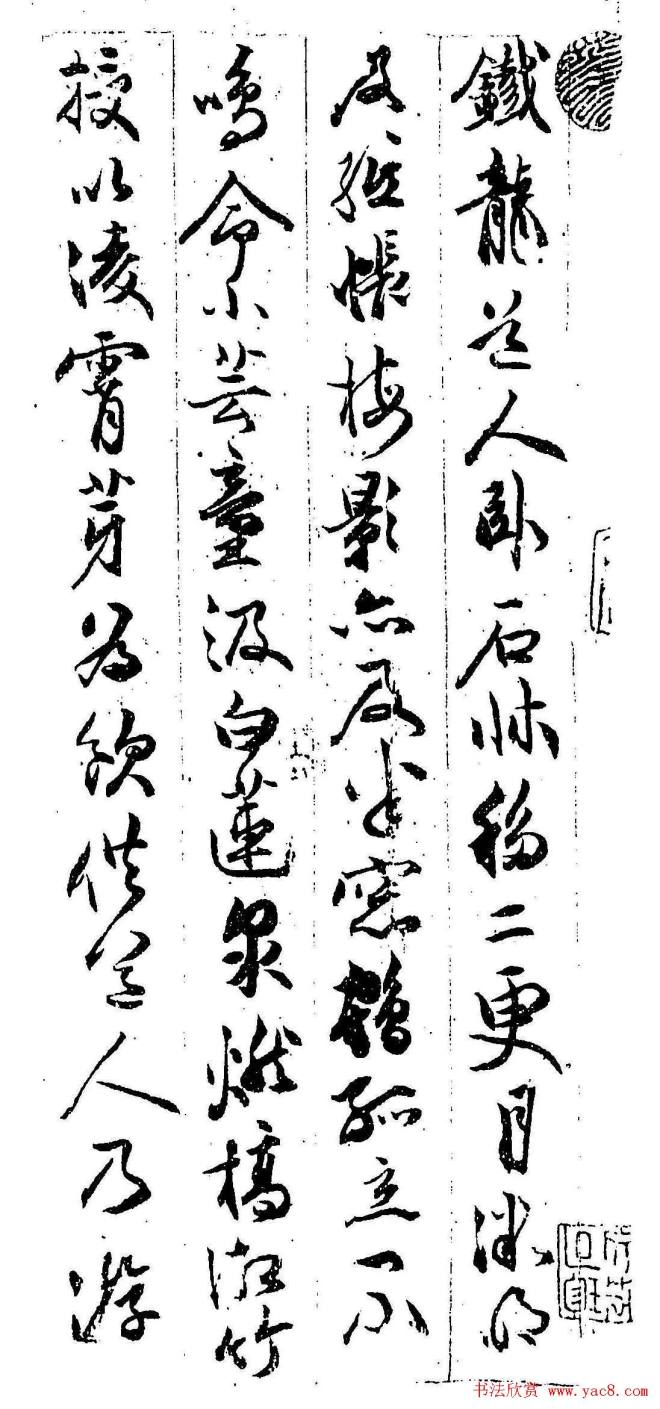 鐵龍道人卧石牀移二更月微明
及紙帳梅影亦及半窓鶴孤立不
鳴命小芸童汲白蓮泉燃槁湘竹
授以淩霄芽為飲供道人乃游
书法欣赏 www.yac8.com